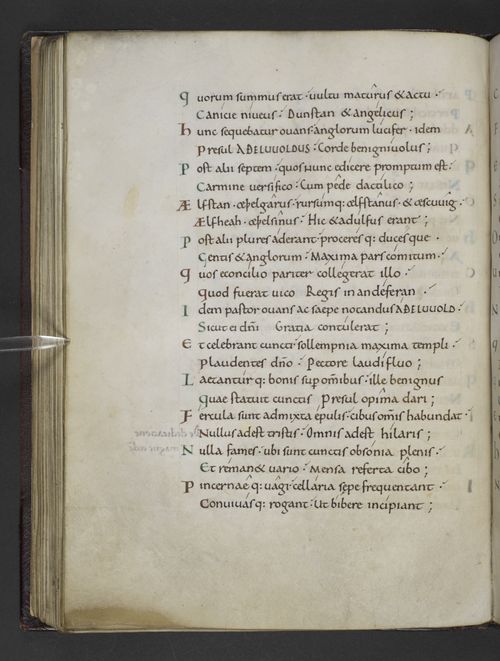 Quorum summus erat · vultu maturus & actu ·
Canicie niveus ; Dunstan & angelicus ;
Hunc sequebatur ovans · anglorum lucifer · idem
Presul ADELUUOLDUS · Corde benignivolus ;
Post alii septem · quos nunc edicere promptum est ·
Carmine versifico · Cum pede dactilico ;
Ælfstan · æþelgarus · rursumq: ælfstanus · & æscuuig ·
Ælfheah · æþelsinus · Hic & adulfus erant ;
Post alii plures aderant · proceres q: duces que ·
Gentis & anglorum · Maxima pars comitum ·
Quos e concilio pariter collegerat illo ·
Quod fuerat vico Regis in andeferan ·
Idem pastor ovans ac saepe notandus ADELUUOLD ·
Sicut ei dñi Gratia contulerat ;
Et celebrant cuncti sollempnia maxima templi ·
Plaudentes dño · Pectore laudifluo ;
Laetantur q: bonis sup omibus · ille benignus
Quae statuit cunctis Presul opima dari ;
Fercula sunt admixta epulis · cibus omis habundat ·
Nullus adest tristis · Omnis adest hilaris ;
Nulla fames · ubi sunt cunctis obsonia plenis ·
Et reman& vario · Mensa referta cibo ;
Pincernae q: vagi · cellaria sepe frequentant ·
Convivasq: rogant · Ut bibere incipiant ;